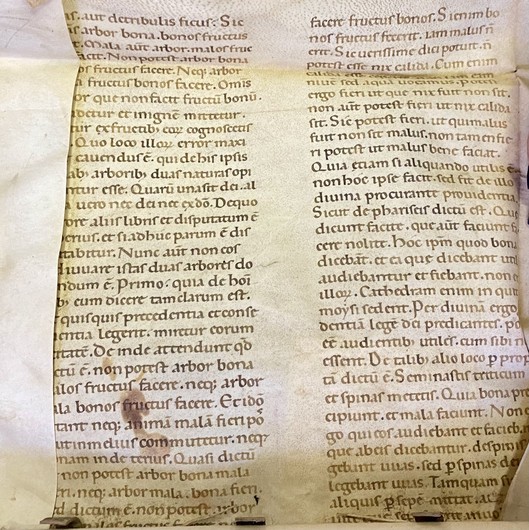 s. aut de tribulis ficus? Sic
arbor bona. bonos fructus
t. Mala aūt arbor. malos fruc
it. Non potest arbor bona
s fructus facere. Neq; arbor
fructus bonos facere. Omis
or que non facit fructū bonū.
detur et in ignē mittetur.
tur ex fructib; eoꝝ cognoscetis
. Quo loco illoꝝ error maxi
cauendus ē. qui de his ipsis
ab; arborib; duas naturas opi
ntur esse. Quarū una sit dei. al
a uero nec dei nec ex dō. De quo
ore aliis libris et disputatum ē
erius. et si adhuc parum ē dis
tabitur. Nunc aūt non eos
diuuare istas duas arbores do
ndum ē. Primo. quia de hoī
b; eum dicere tam clarum est.
quisquis precedentia et conse
entia legerit. miretur eorum
tatē. Deinde attendunt qd
tū ē. non potest arbor bona
los fructus facere. neq; arbor
ala bonos fructus facere. Et idō
tant neq; animā malā fieri pō
ut in melius commutetur. neq;
nam in deterius. Quasi dictū
non potest arbor bona mala
ri. neq; arbor mala. bona fieri.
d dictum ē. non potest arbor
facere fructus bonos. Si enim bo
nos fructus fecerit. iam malus n̄
erit. Sic uerissime dici potuit. n̄
potest esse nix calida. Cum enim
calida esse
niue sed aquā uocamus. potest
ergo fieri ut que nix fuit non sit.
non aūt potest fieri ut nix calida
sit. Sic potest fieri. ut qui malus
fuit non sit malus. non tamen fie
ri potest ut malus bene faciat.
Quia etiam si aliquando utilis ē
non hoc ipse facit. sed fit de illo
diuina procurante prouidentia.
Sicut de phariseis dictū est. Que
dicunt facite. que aūt faciunt fa
cere nolite. Hoc ipm quod bona
dicebāt. et ea que dicebant uti
audiebantur et fiebant. non e
illoꝝ. Cathedram enim in qui
moysi sedent. Per diuinā ergo
dentiā legē dei predicantes. po
eē audientib; utiles. cum sibi n
essent. De talib; alio loco p prop
ta dictū ē. Seminastis triticum
et spinas metetis. Quia bona pre
cipiunt. et mala faciunt. Non
go qui eos audiebant et facieba
que ab eis dicebantur. de spini
gebant uuas. sed p spinas de
legebant uuas. Tamquam si
aliquis p sepē mittat. ac